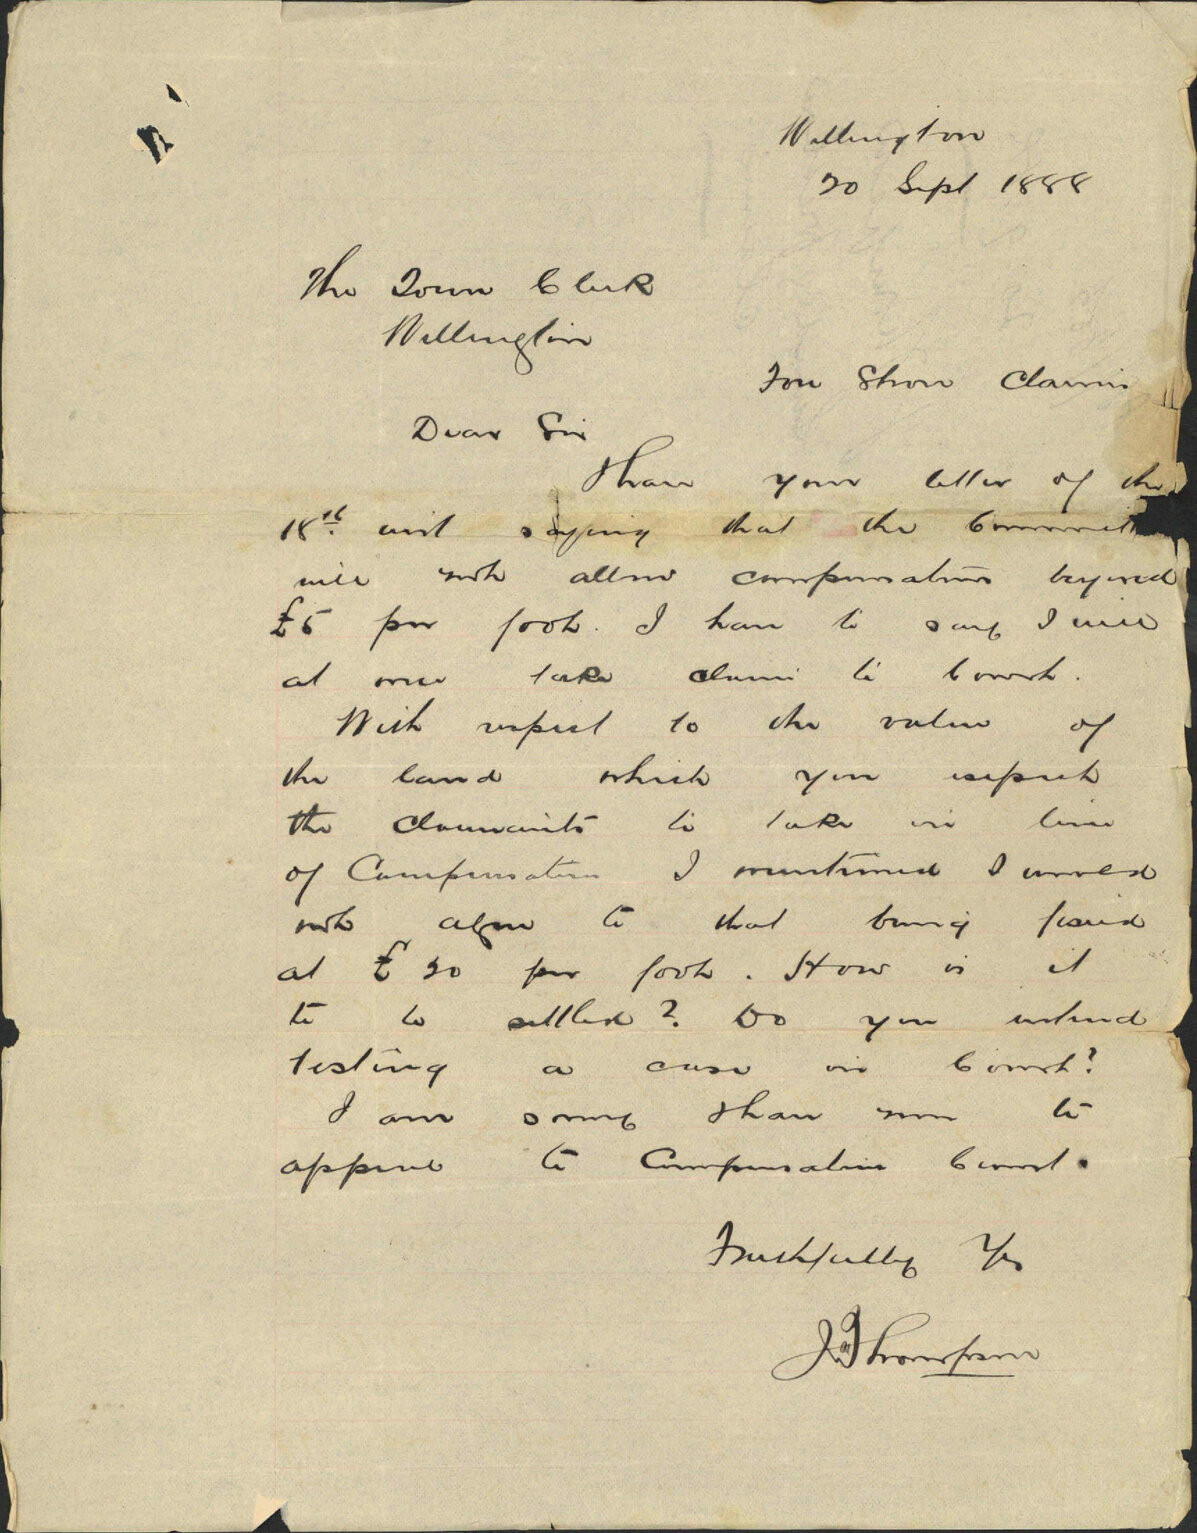 Wellington
20 Sept 1888
The Town Clerk
Wellington
Fore Shore Claims
Dear Sir
I have your letter of the
18th inst saying that the Committee
will not allow compensation beyond
£5 per foot. I have to say I will
at once take claim to Court.
With respect to the value of
the land which you expect
the claimants to take in lieu
of Compensation I mentioned I would
not agree to that being fixed
at £20 per foot. How is it
to be settled? Do you intend
testing a case in Court?
I am sorry I have now to
appeal to Compensation Court.
Faithfully Yrs
Thompson